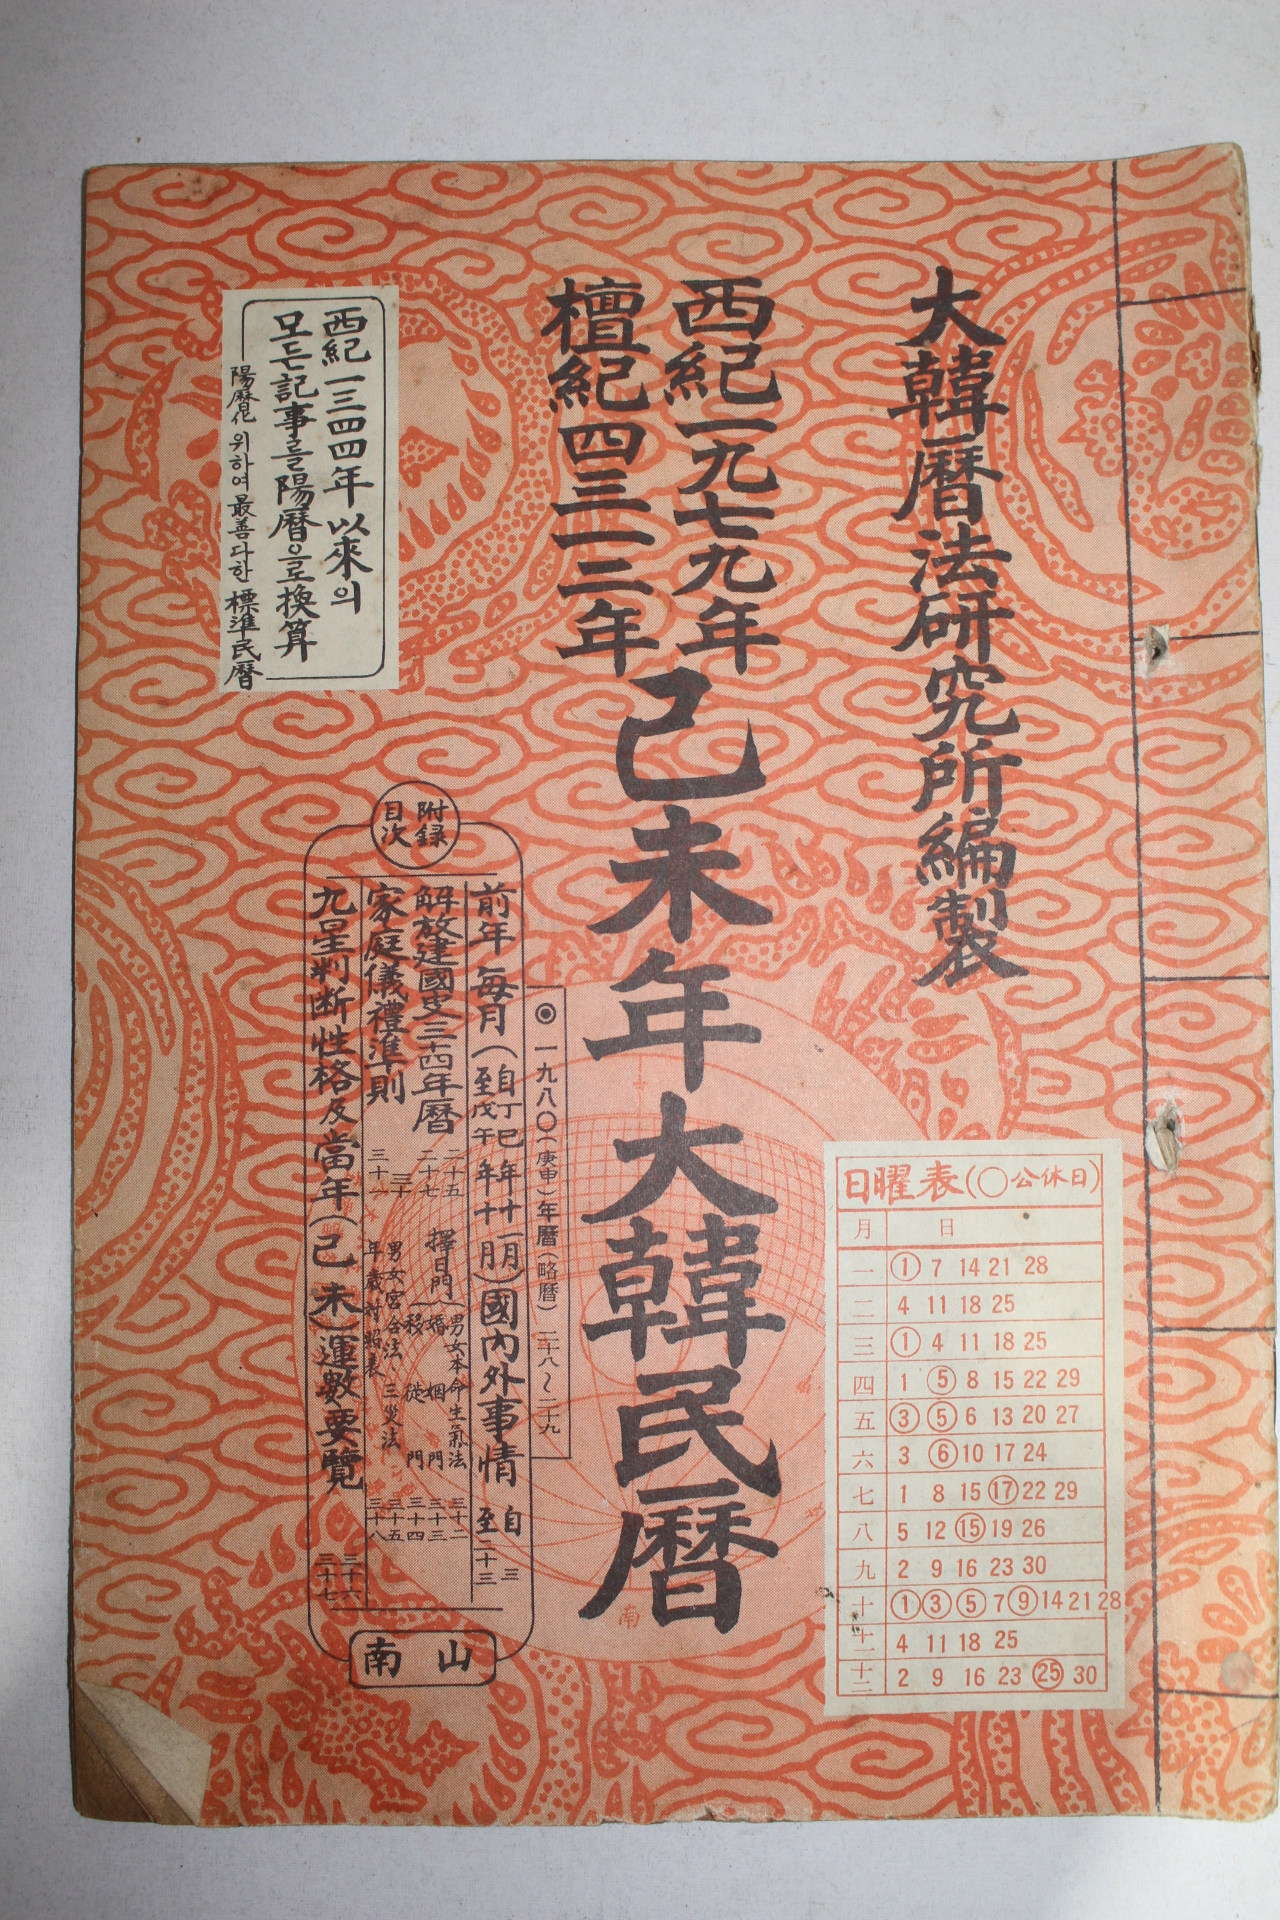 大韓曆法研究所編製
西紀一九七九年
檀紀四三一二年
己未年大韓民曆
西紀一三四四年以來의
모든記事를陽曆으로換算
陽曆化 위하여最善다한標準民曆
附錄
目次
◉ 一九八〇(庚申)年曆(略曆) 二十八～二十九
前年每月(自丁巳年十一月 至戊午年十月)國內外事情 自三 至二十三
解放建國史三十四年曆 二十五
二十七
擇日門
男女本命生氣法 三十二
婚姻門 三十三
移從門 三十四
家庭儀禮準則 三十
三十一
男女宮合法 三災法 三十五
年歲對照表 三十八
九星判斷性格及當年(己未)運數要覽 三十六
三十七
南山
南
日曜表(〇公休日)
月 日
一 ① 7 14 21 28
二 4 11 18 25
三 ① 4 11 18 25
四 1 ⑤ 8 15 22 29
五 ③ ⑤ 6 13 20 27
六 3 ⑥ 10 17 24
七 1 8 15 ⑰ 22 29
八 5 12 ⑮ 19 26
九 2 9 16 23 30
十 ① ③ ⑤ 7 ⑨ 14 21 28
十一 4 11 18 25
十二 2 9 16 23 ㉕ 30